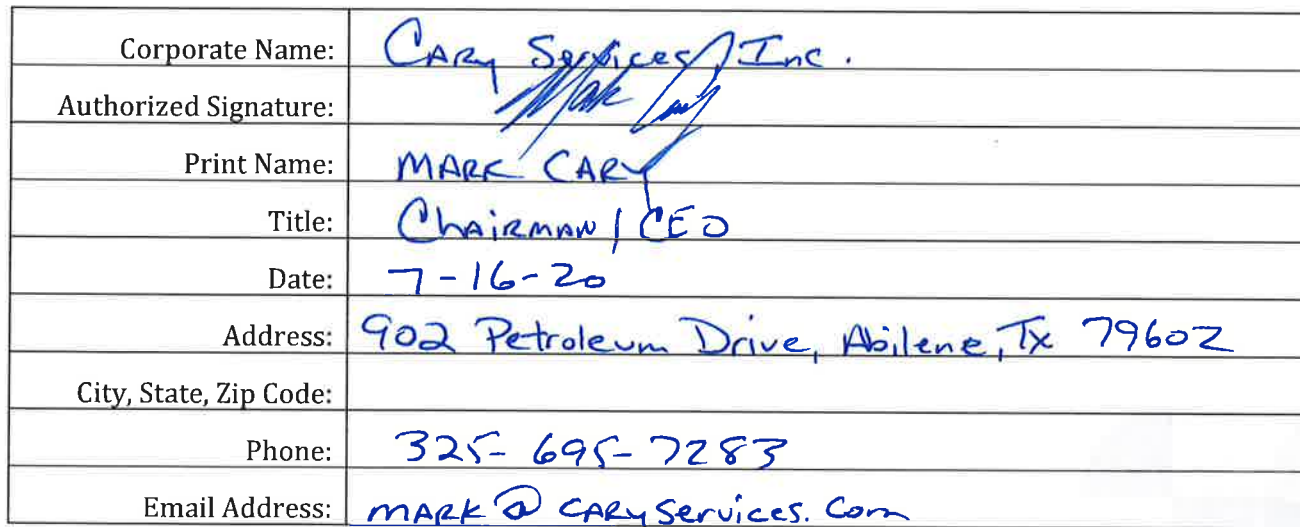 Corporate Name: Cary Services, Inc.
Authorized Signature: Mark Cary
Print Name: MARK CARY
Title: Chairman / CEO
Date: 7-16-20
Address: 902 Petroleum Drive, Abilene, Tx 79602
City, State, Zip Code:
Phone: 325-695-7283
Email Address: mark@caryservices.com